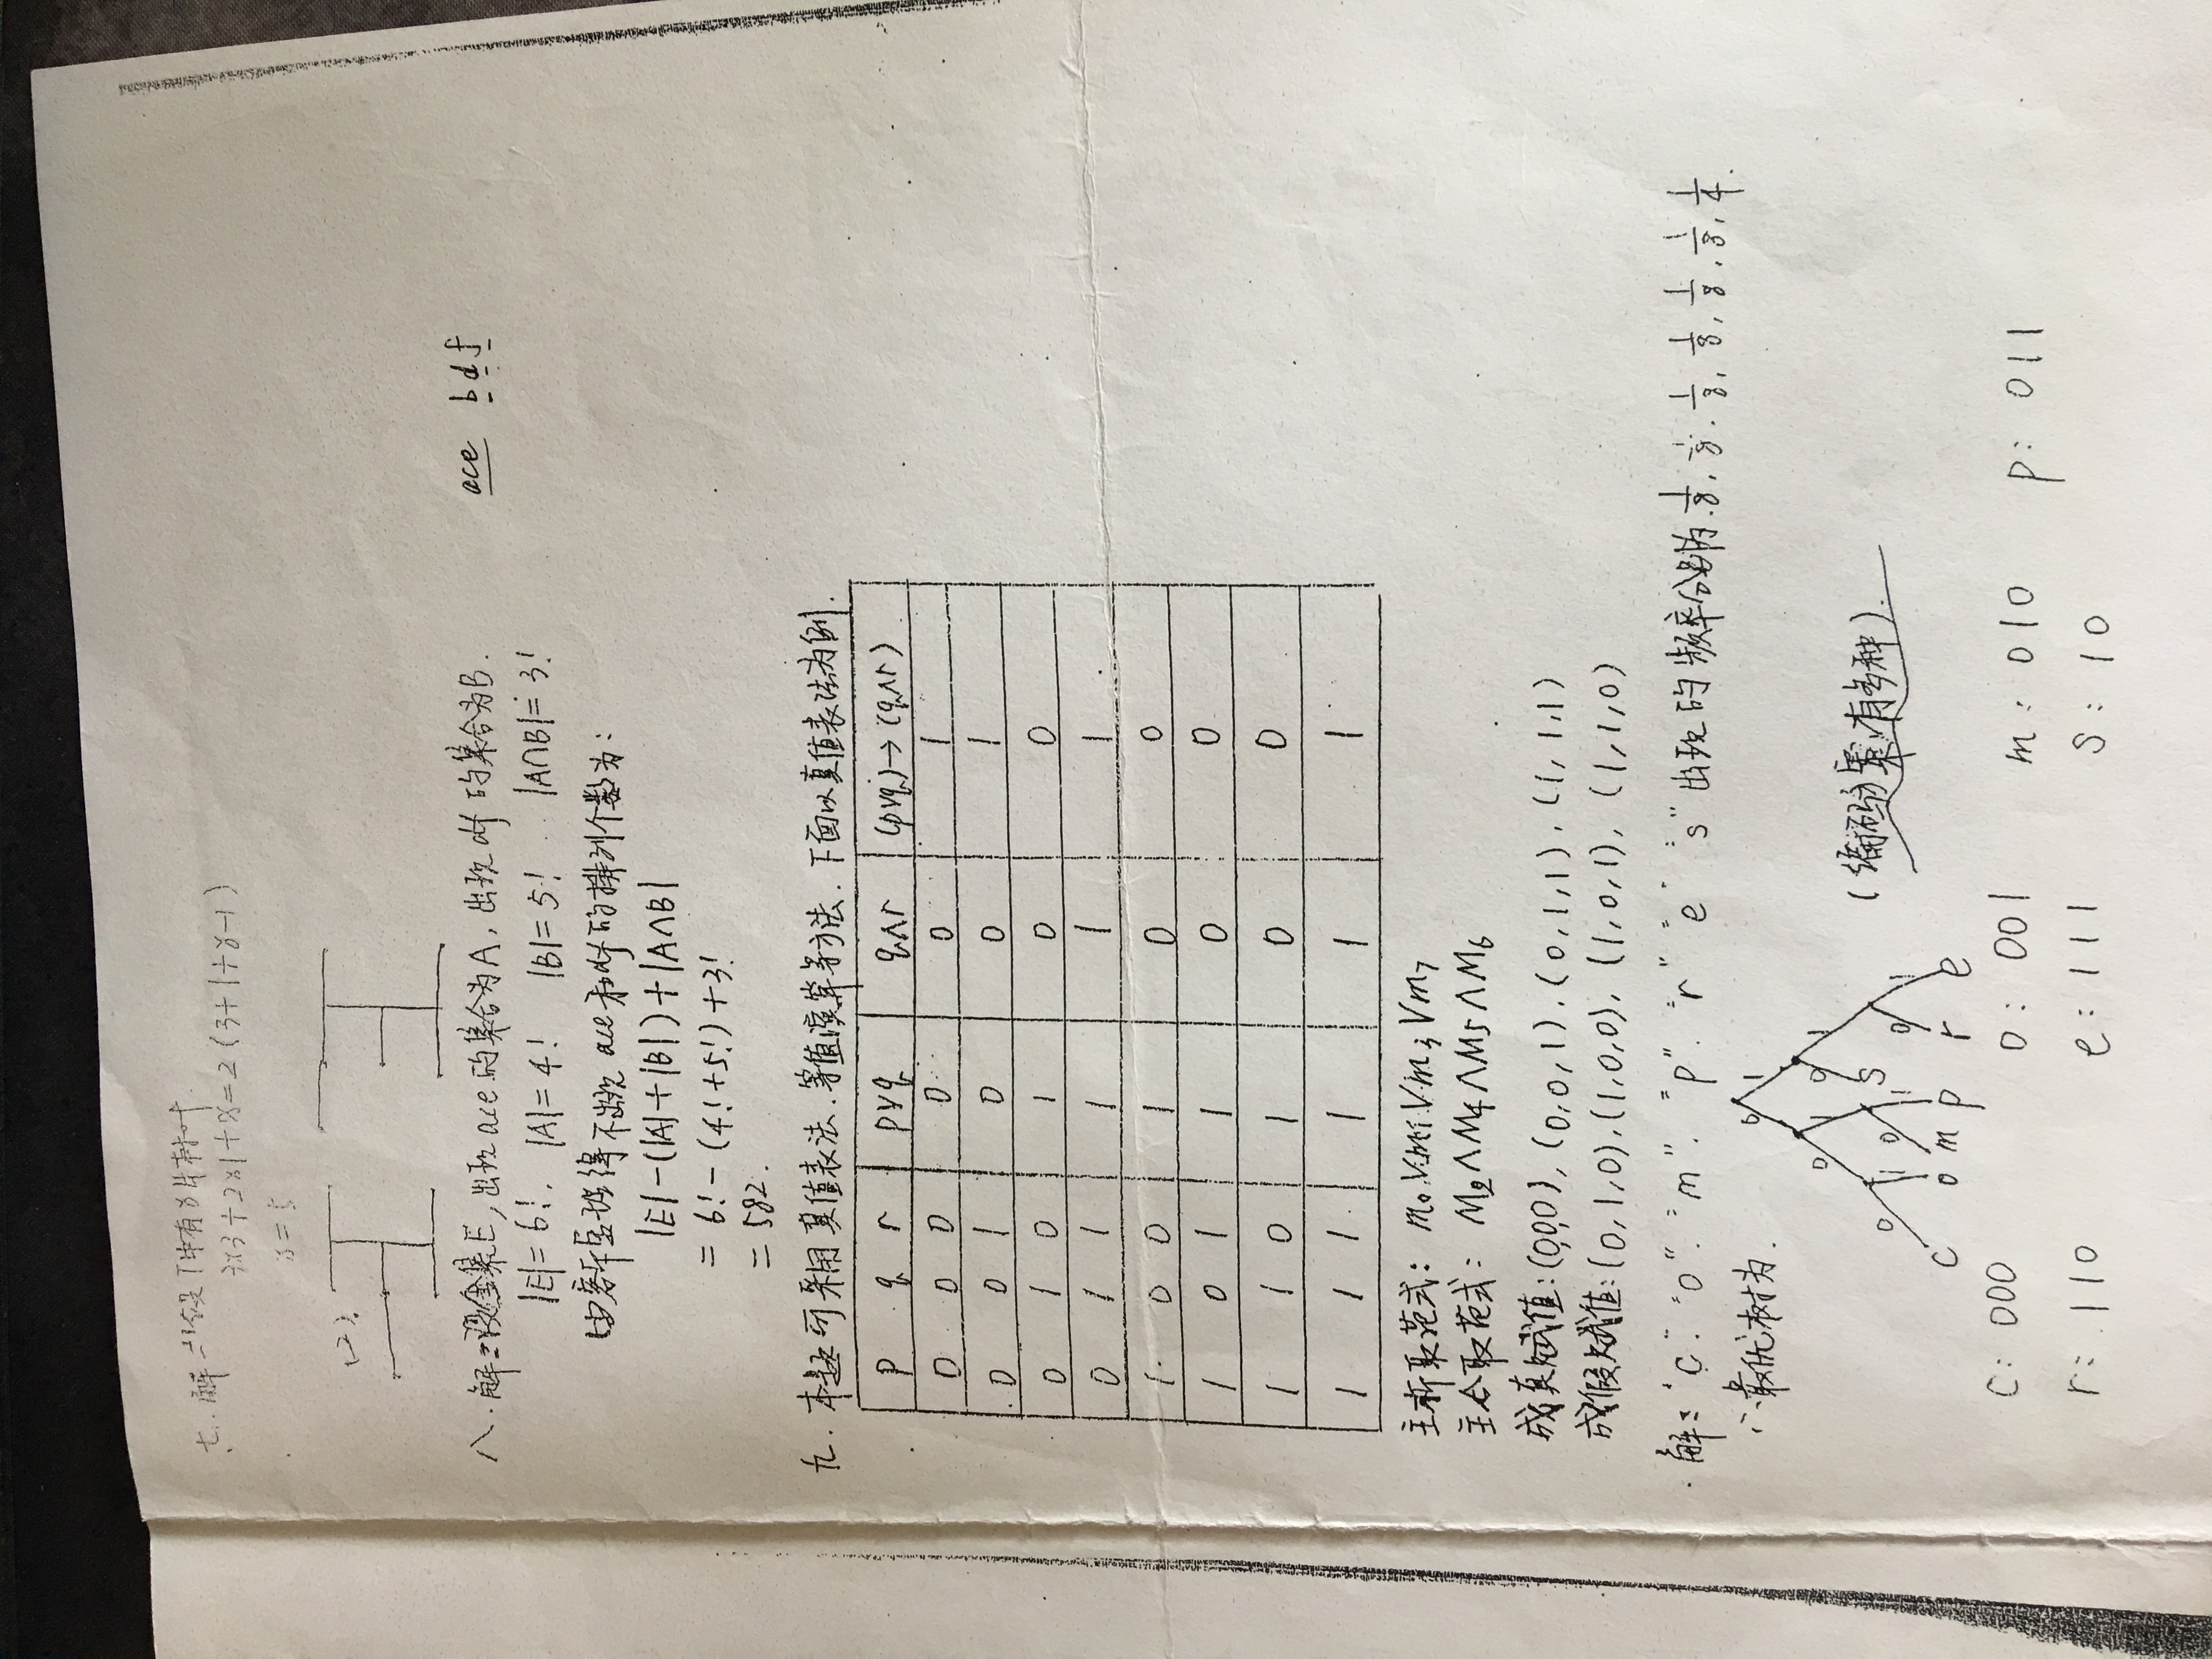 七. 解: 设T中有x片树叶.
3×3+2×1+x=2(3+1+x-1)
x=5
(2).
八. 解:设全集E,出现ace的集合为A,出现df的集合为B.
ace bdf
|E|=6!. |A|=4! |B|=5! |A∩B|=3!
由容斥原理得不出现ace和df的排列个数为:
|E|-(|A|+|B|)+|A∩B|
= 6!-(4!+5!)+3!
= 582.
九. 本题可采用真值表法.等值演算等方法. 下面以真值表法为例.
p q r p∨q q∧r (p∨q)→(q∧r)
0 0 0 0 0 1
0 0 1 0 0 1
0 1 0 1 0 0
0 1 1 1 1 1
1 0 0 1 0 0
1 0 1 1 0 0
1 1 0 1 0 0
1 1 1 1 1 1
主析取范式: m₀∨m₁∨m₃∨m₇
主合取范式: M₂∧M₄∧M₅∧M₆
成真赋值:(0,0,0),(0,0,1).(0,1,1).(1,1,1)
成假赋值:(0,1,0).(1,0,0),(1,0,1),(1,1,0)
解: "c". "o". "m". "p". "r" "e" "s" 出现的频率分别为 1/8, 1/8, 1/8, 1/8, 1/8, 1/8, 1/4.
∴最优树为.
0 1
0 1 0 1
0 1 0 1 S 0 1
c o m p r e
(编码方案有多种).
c: 000 o: 001 m: 010 p: 011
r: 110 e: 111 s: 10